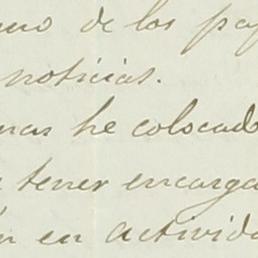 de los
noticias.
he colocado
tener encarga
en activida